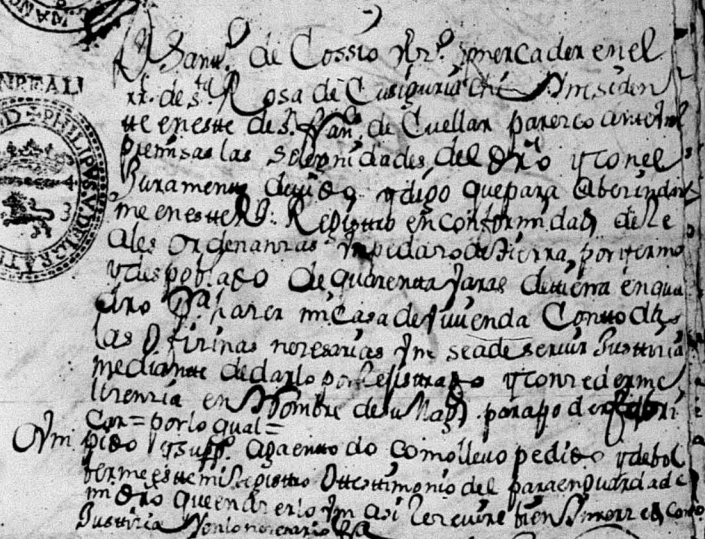 Franco. de Cossio Vzo. y mercader en el
Rl. de Sta. Rosa de Cusiguriachi y Residen
tte en este de S. Franco. de Cuellar parezco ante Vmd
premisas las solemnidades del dro y con el
Juramento devido y digo que para avezindar
me en este Rl. Registtro en conformidad de Re
ales ordenanzas un pedazo de tierra por yermo
y despoblado de quarenta varas de tierra en qua
dro Pa. hazer mi Casa de vivienda Con todas
las oficinas nesesarias Vmd. se a de servir Justticia
mediantte de darlo por Registrado y concederme
lizenzia en Nombre de su Magd. para poder fabri
car = por lo qual =
A Vmd pido y supco. aga en todo como llevo pedido y debol
berme este mi Registtro o testtimonio del para en guarda de
mi dro que en azerlo Vmd asi Rezevire bien y merced Con
Justticia y en lo nesesario Va.
NREAL
PHILIPPUS V DEI GRATI